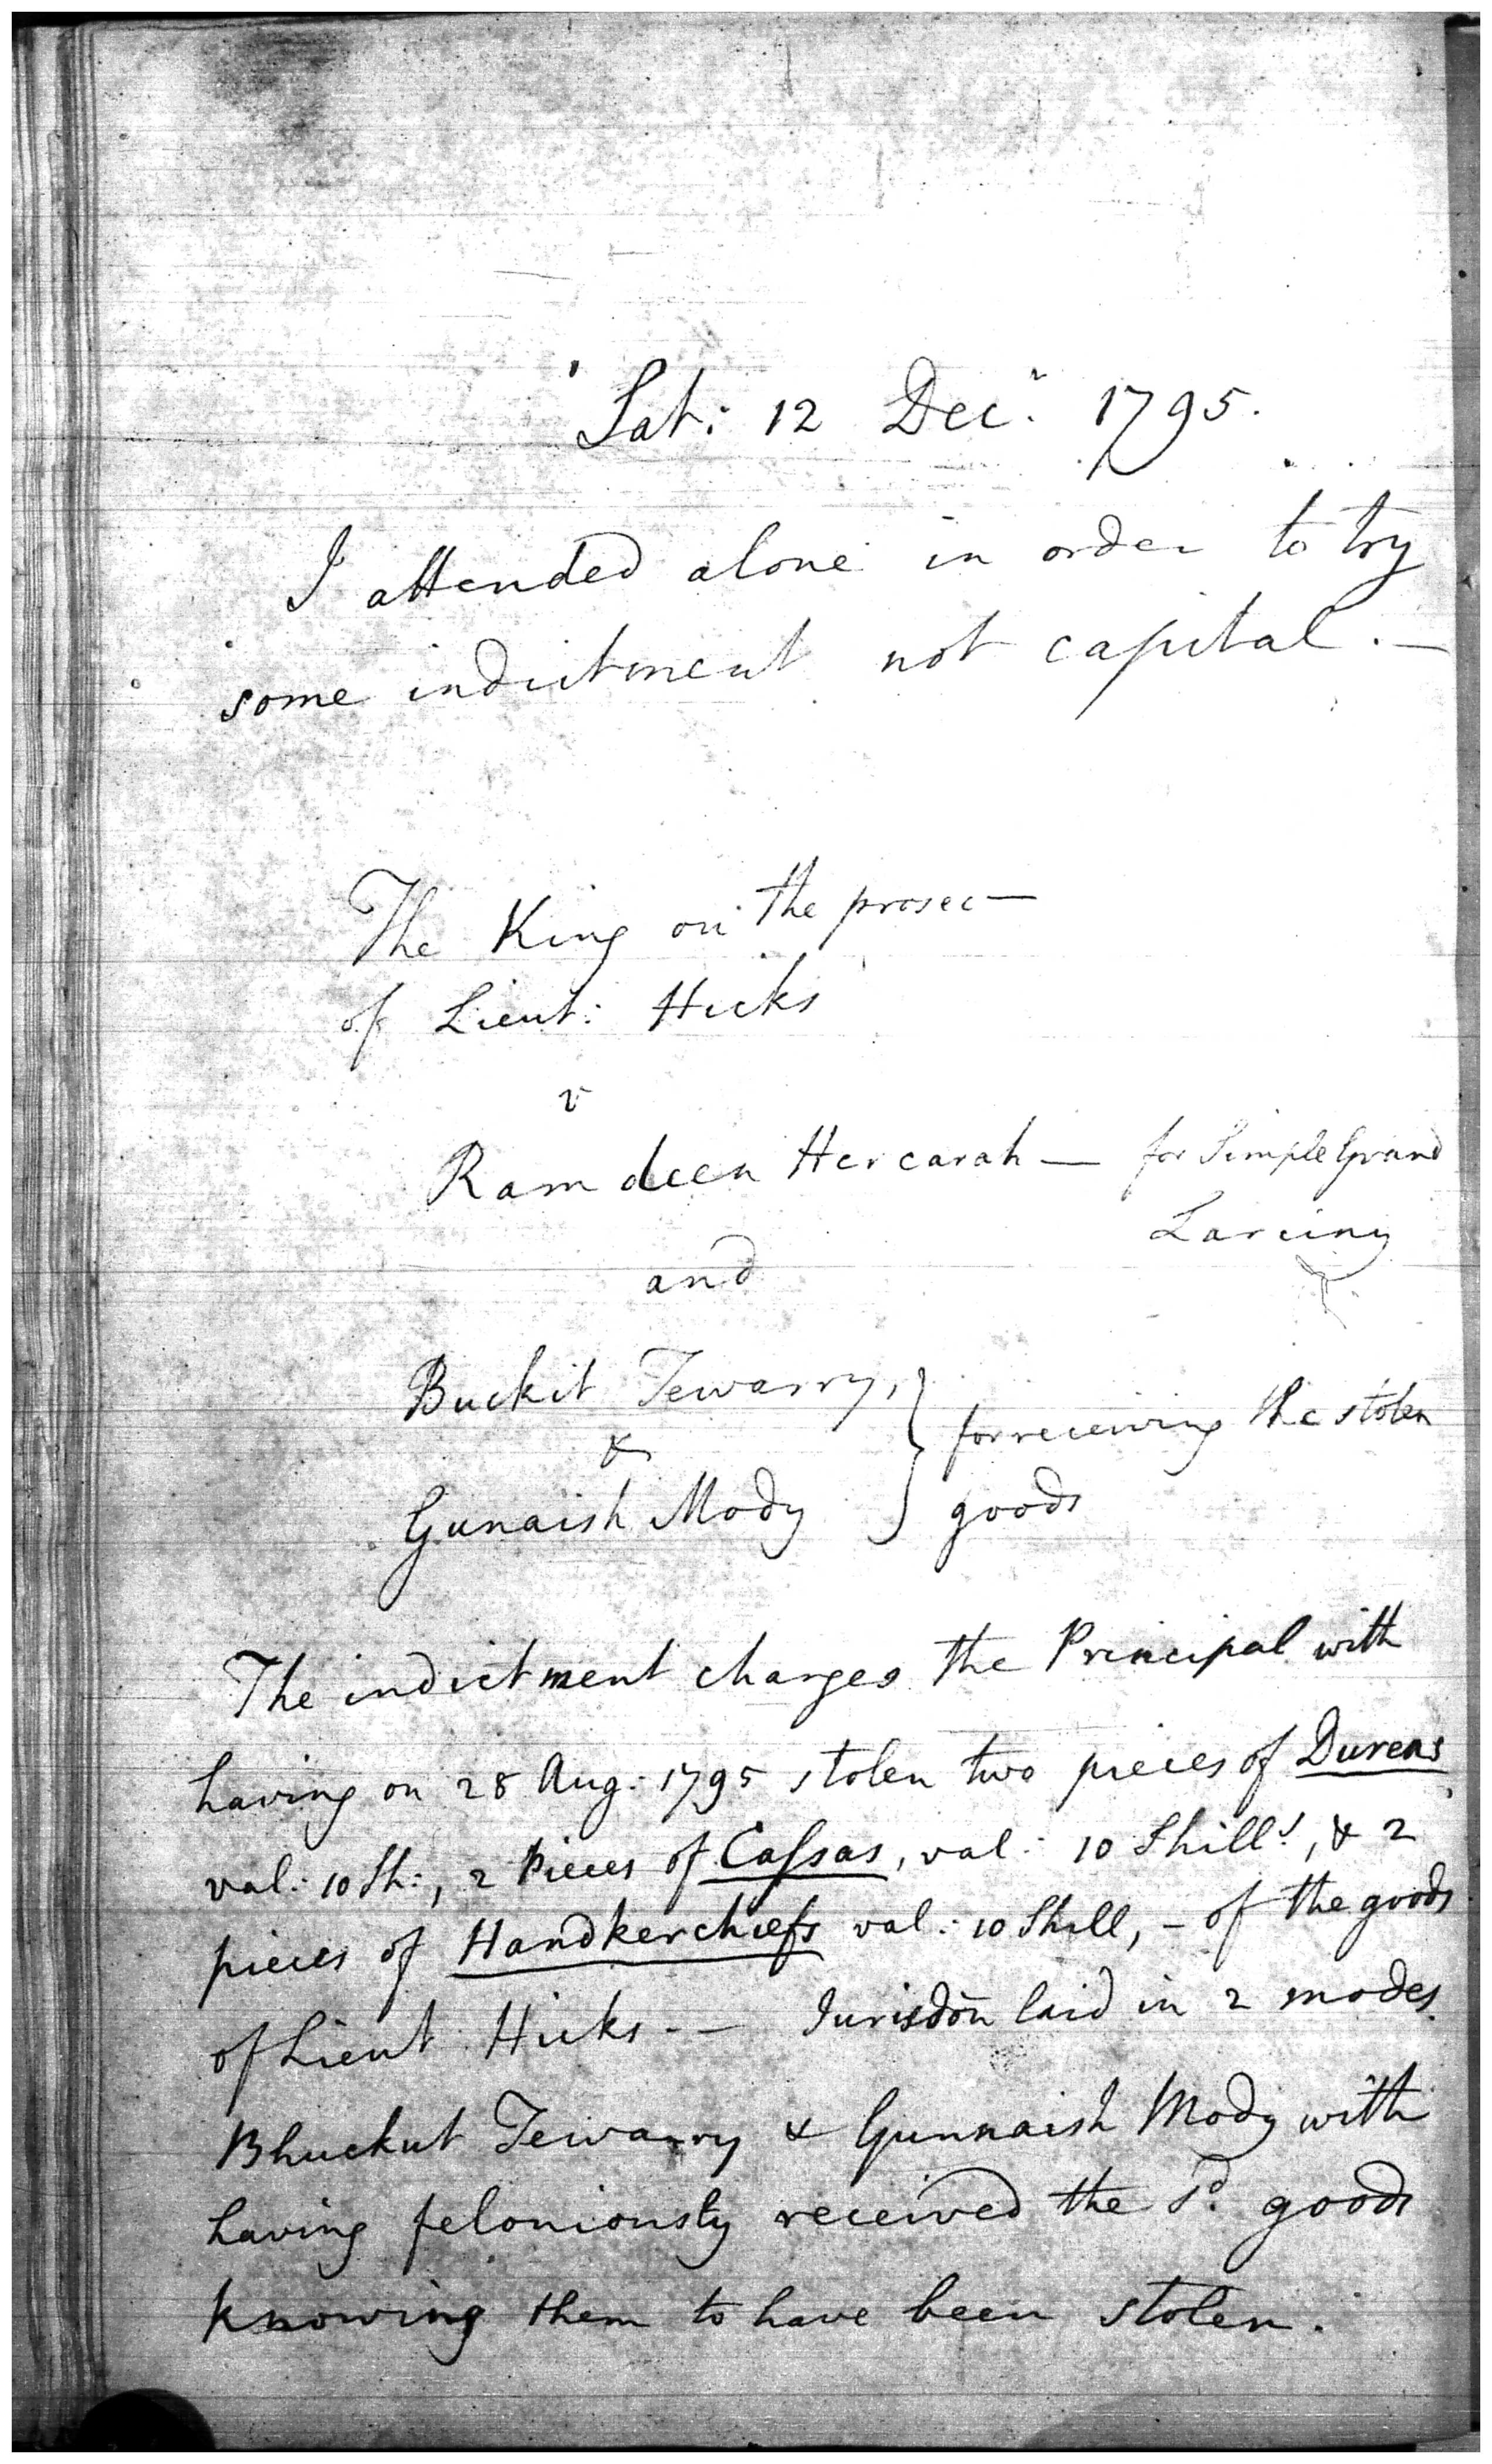 Sat: 12 Decr. 1795.
I attended alone in order to try
some indictment not capital. —
The King on the prosec—
of Lieut: Hicks
v
Ramdeen Hercarah — for Simple Grand
Larciny
and
Buckit Tewarry,
&
Gunaish Mody } for receiving the stolen
goods
The indictment charges the Principal with
having on 28 Aug: 1795 stolen two pieces of Dureas
val: 10 Sh:, 2 Pieces of Cassas, val: 10 Shills., & 2
pieces of Handkerchiefs val: 10 Shill, - of the goods
of Lieut: Hicks. — Jurisdōn laid in 2 modes.
Bhuckut Tewarry & Gunnaish Mody with
having feloniously received the sd. goods
knowing them to have been stolen.